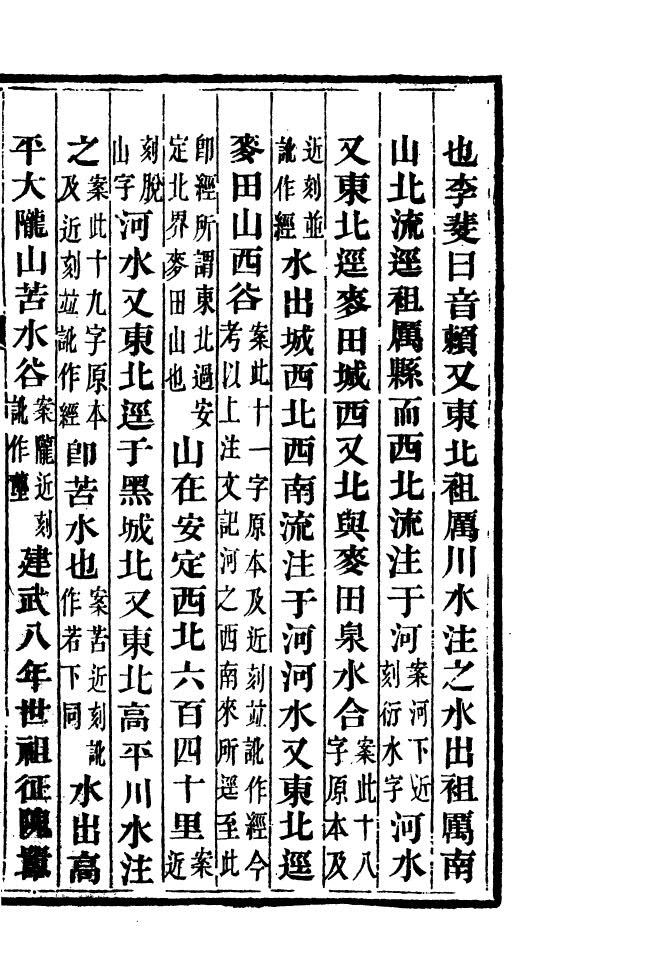 也李斐曰音賴又東北祖厲川水注之水出祖厲南
山北流逕祖厲縣而西北流注于河案河下近刻衍水字河水
又東北逕麥田城西又北與麥田泉水合案此十八字原本及
近刻並訛作經水出城西北西南流注于河河水又東北逕
麥田山西谷案此十一字原本及近刻竝訛作經今考以上注文記河之西南來所逕至此
卽經所謂東北過安定北界麥田山也山在安定西北六百四十里案近
刻脫山字河水又東北逕于黑城北又東北高平川水注
之案此十九字原本及近刻竝訛作經卽苦水也案苦近刻訛作若下同水出高
平大隴山苦水谷案隴近刻訛作壟建武八年世祖征隗囂